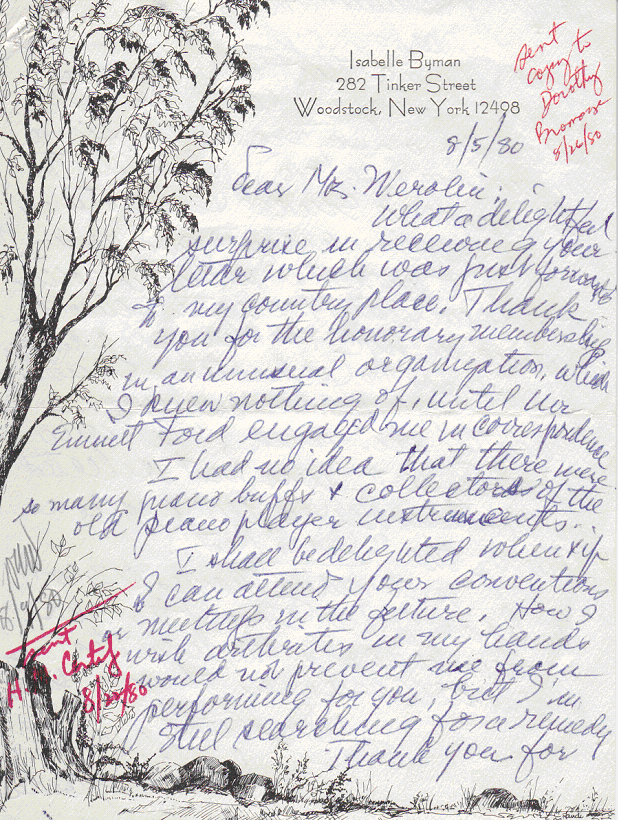 Isabelle Byman
282 Tinker Street
Woodstock, New York 12498
sent
copy to
Dorothy
8/26/80
8/5/80
Dear Mr. Werolin;
What a delightful
surprise in receiving your
letter which was just forwarded
to my country place. Thank
you for the honorary membership
in an unusual organization, which
I knew nothing of, until Mr
Emmett Ford engaged me in correspondence
I had no idea that there were
so many piano buffs & collectors of the
old piano player instruments..
I shall be delighted when & if
I can attend your conventions
or meetings in the future. How I
wish arthrites in my hands
would not prevent me from
performing for you, but I'm
still searching for a remedy
Thank you for
8/9/80
sent
H.M. Certif
8/22/80